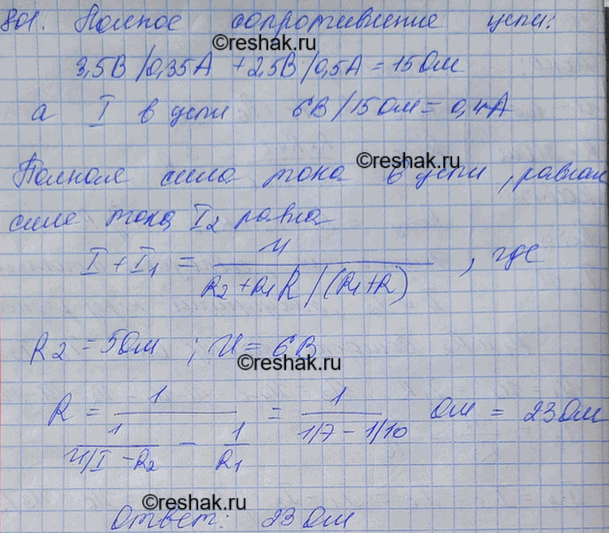 801. Полное сопротивление цепи:
©reshak.ru
3,5В/0,35А + 2,5В/0,5А = 15 Ом
а I в цепи 6В/15Ом = 0,4А
©reshak.ru
Полная сила тока в цепи, равная
силе тока I2 равна
I + I1 = U / (R2 + R1R/(R1+R)), где
R2 = 5Ом ; U = 6В
©reshak.ru
R = 1 / (1/(U/I - R2) - 1/R1) = 1 / (1/7 - 1/10) Ом = 23 Ом
©reshak.ru
Ответ: 23 Ом